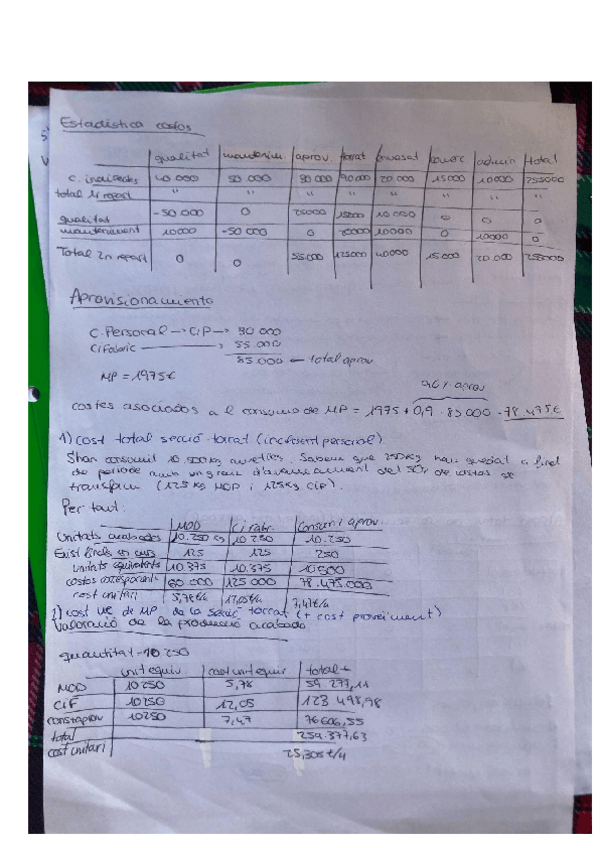 Estadística costos
qualitat mantenim. aprov. torrat envasat comerc admin total
C. indirectes 40.000 50 000 30 000 90 000 20.000 15000 10000 255000
total 1r repart " " " " " " " "
qualitat -50.000 0 25000 15000 10.000 0 0 0
manteniment 10000 -50 000 0 20000 10000 0 10000 0
Total 2n repart 0 0 55.000 125000 40000 15.000 20.000 255000
Aprovisionamiento
C. Personal → CIP → 30 000
CIFabric → 55.000
85.000 ← total aprov
MP = 1975€
90% aprov
costes asociados a el consumo de MP = 1975 + 0,9 · 85000 = 78.475€
1) cost total secció torrat (incloent personal).
S'han consumit 10.500 kg Sabem que 250kg han quedat a final
de període amb un grau d'avançament del 50% de costos de
transform (125 kg MOD i 125kg CIF).
Per tant:
MOD CI fabr. Consum i aprov
Unitats acabades 10.250 kg 10 250 10.250
Exist finals en curs 125 125 250
unitats equivalents 10.375 10.375 10500
costos corresponents 60 000 125 000 78.475.000
cost unitari 5,78€/u 12,05€/u 7,47€/u
2) cost ue de MP de la secció torrat (+ cost proveïment)
Valoració de la producció acabada
quantitat → 10 250
unit equiv. cost unt equiv total €
MOD 10250 5,78 59 277,11
CIF 10250 12,05 123 493,98
const aprov 10250 7,47 76606,55
total 259.377,63
cost unitari 25,305 €/u